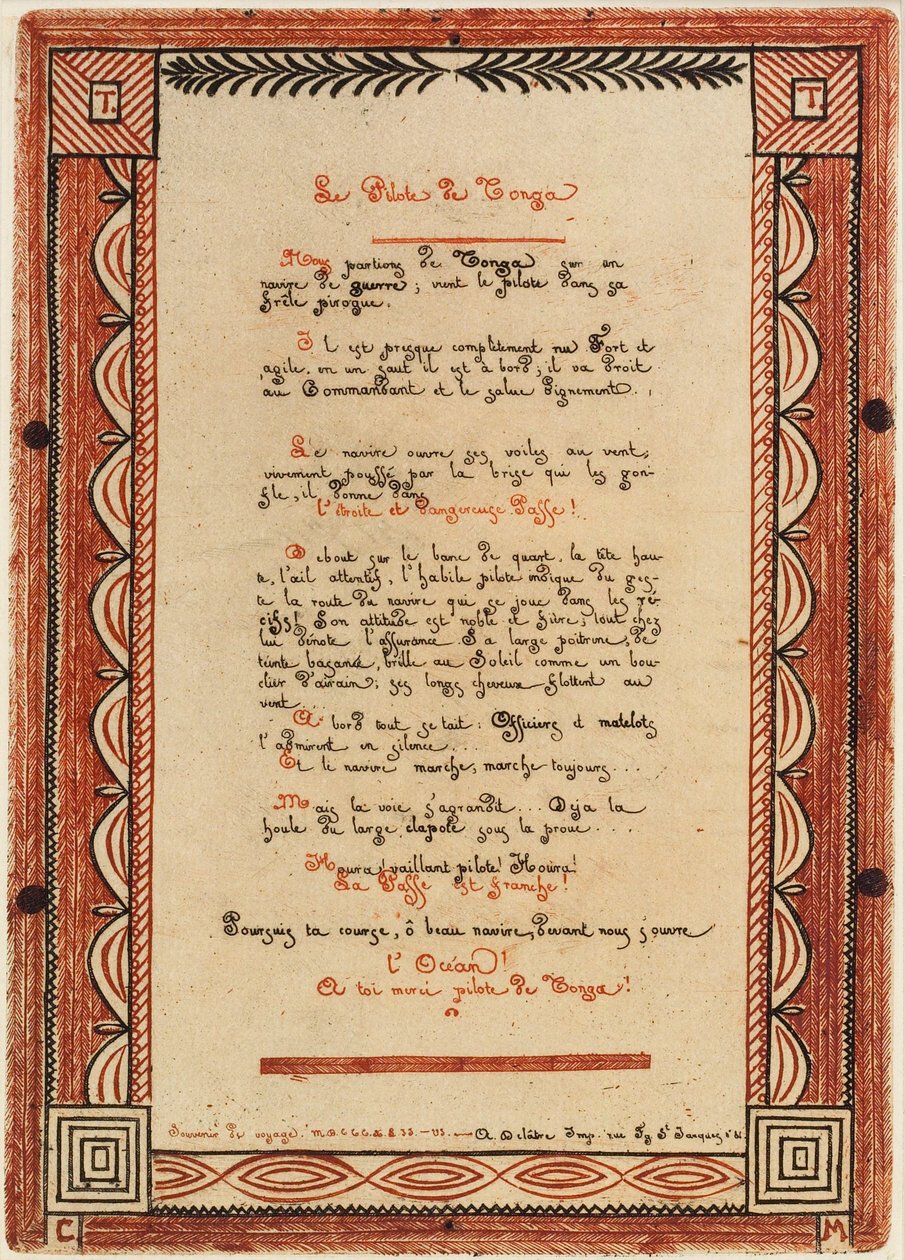 T.
T.
Le Pilote de Tonga
Nous partions de Tonga sur un
navire de guerre ; vient le pilote dans sa
frêle pirogue.
Il est presque complètement nu Fort et
agile. en un saut il est à bord ; il va droit
au Commandant et le salue dignement.
Le navire ouvre ses voiles au vent,
vivement poussé par la brise qui les gon-
fle, il donne dans
l'étroite et dangereuse Passe !
Debout sur le banc de quart, la tête hau-
te, l'œil attentif, l'habile pilote indique du ges-
te la route du navire qui se joue dans les ré-
cifs! Son attitude est noble et fière ; tout chez
lui dénote l'assurance. Sa large poitrine, de
teinte basanée, brille au Soleil comme un bou-
clier d'airain ; ses longs cheveux flottent au
vent...
A bord tout se tait : Officiers et matelots
l'admirent en silence...
Et le navire marche, marche toujours...
Mais la voie s'agrandit... Déja la
houle du large clapote sous la proue....
Houra ! vaillant pilote! Houra!
La Passe est franche !
Poursuis ta course, ô beau navire, devant nous s'ouvre
l'Océan !
A toi merci pilote de Tonga !
Souvenir de voyage. A. Delâtre Imp. rue Fg St Jacques
C.
M